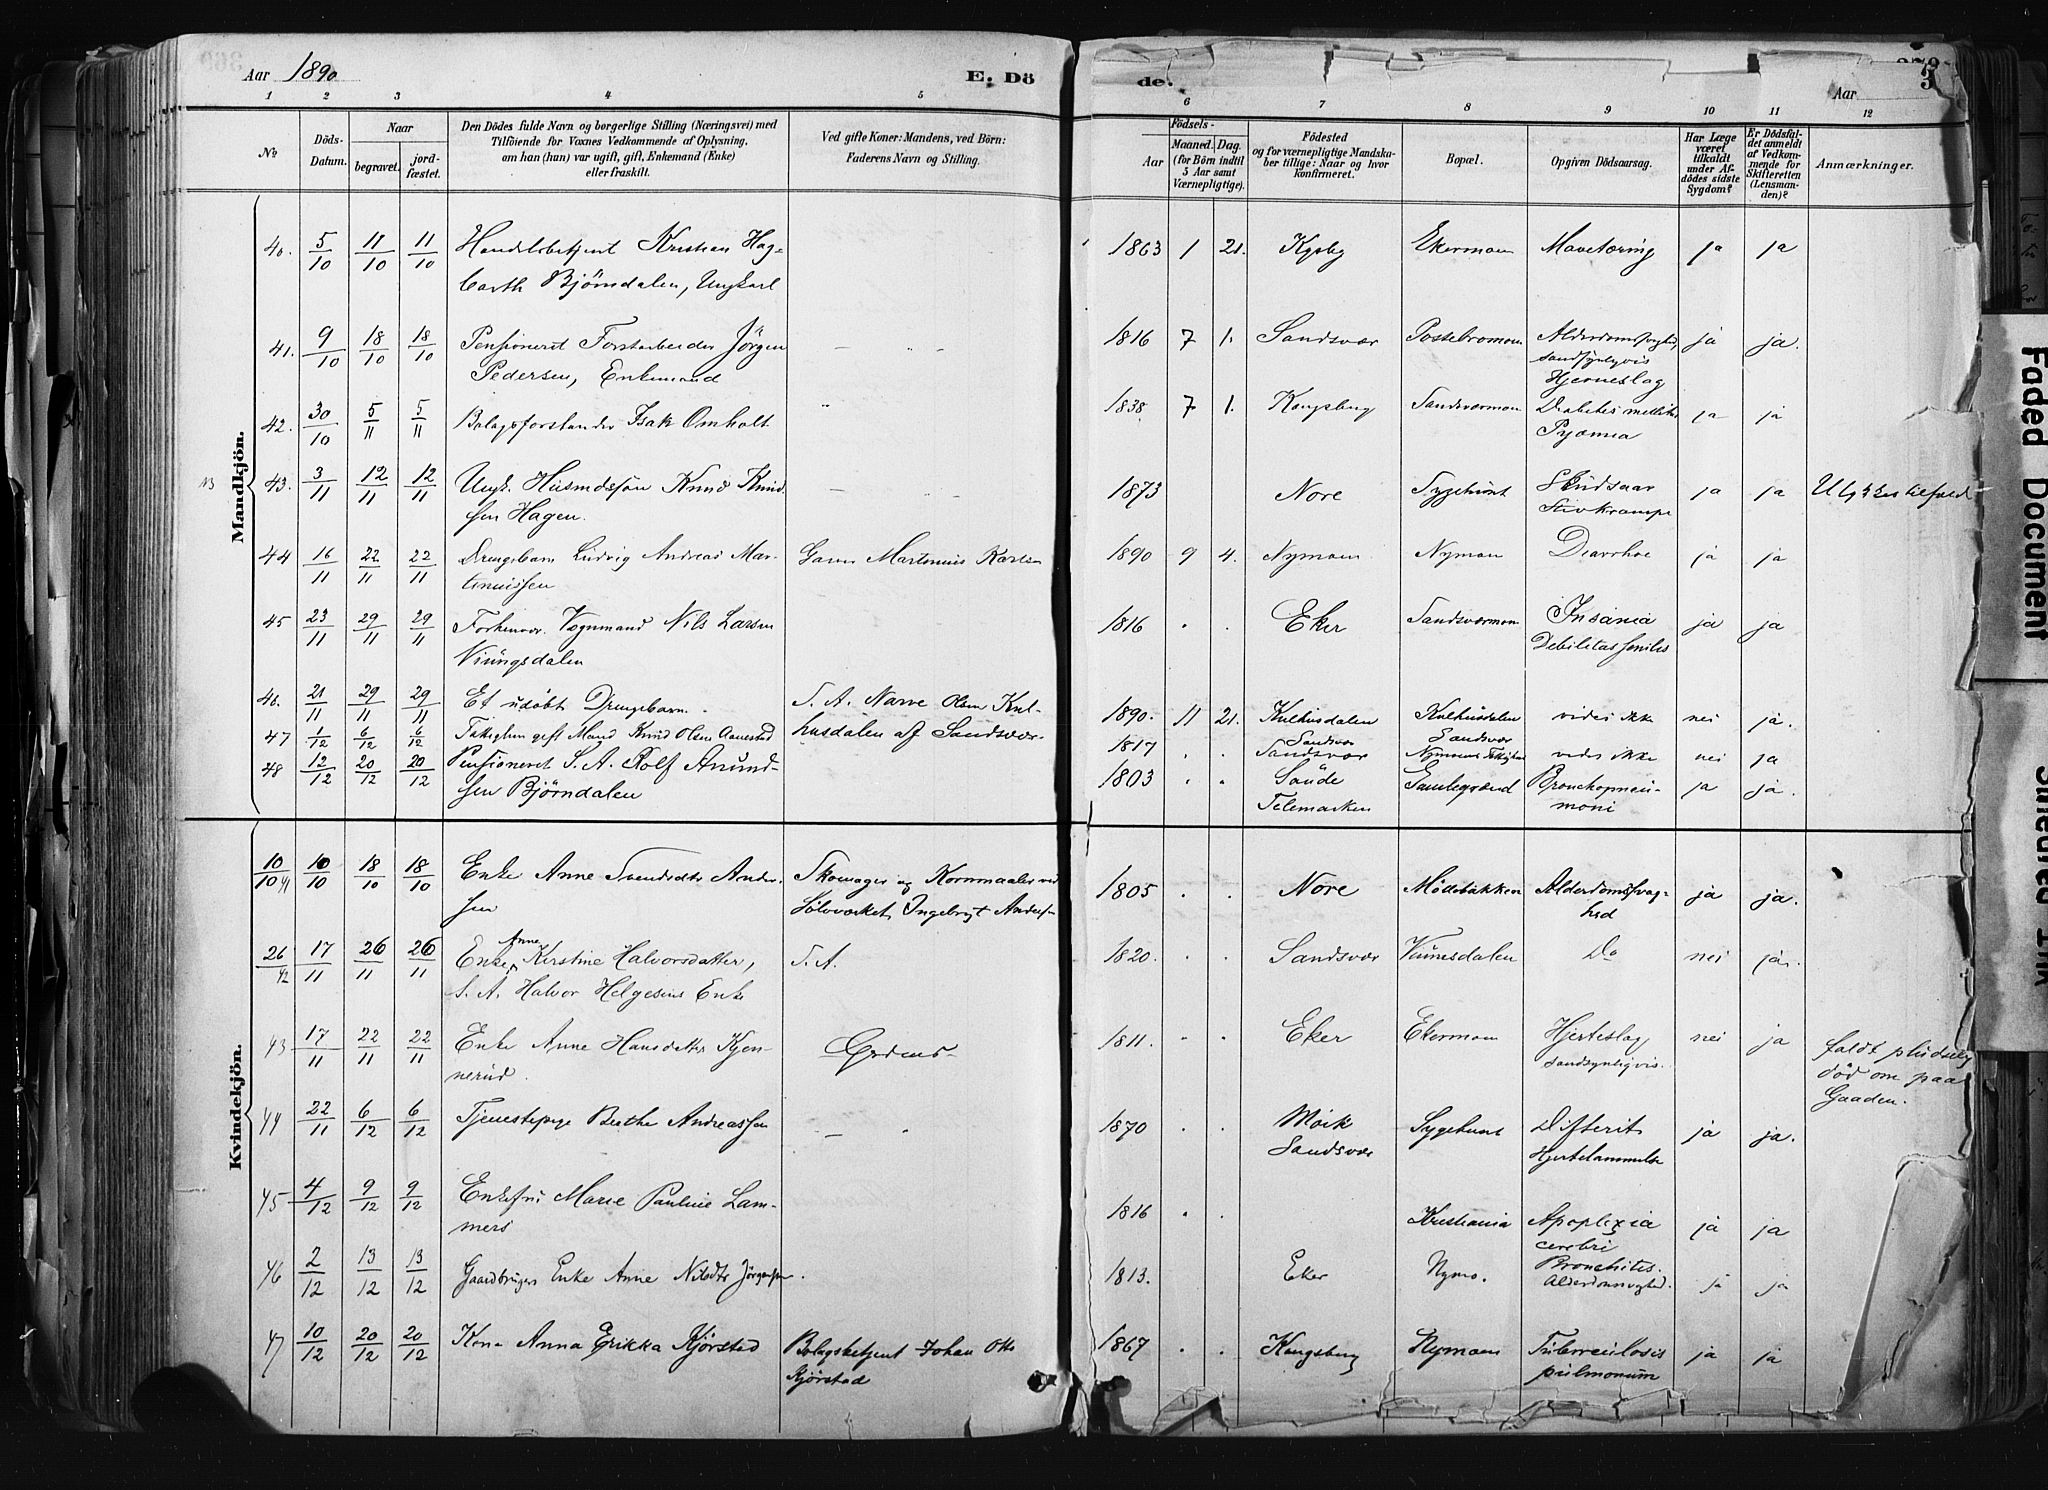 Aar 1890
E. Dö
de.
Aar
3
1 2 3 4 5 6 7 8 9 10 11 12
No
Döds-Datum.
Naar
begravet.
jord-fæstet.
Den Dödes fulde Navn og borgerlige Stilling (Næringsvei) med
Tilföiende for Voxnes Vedkommende af Oplysning,
om han (hun) var ugift, gift, Enkemand (Enke)
eller fraskilt.
Ved gifte Koner: Mandens, ved Börn:
Faderens Navn og Stilling.
Födsels-
Aar
Maaned. (for Börn indtil 5 Aar samt Værnepligtige).
Dag.
Födested
og for værnepligtige Mandska-
ber tillige: Naar og hvor
konfirmeret.
Bopæl.
Opgiven Dödsaarsag.
Har Læge været tilkaldt under Afdödes sidste Sygdom?
Er Dödsfaldet anmeldt af Vedkommende for Skifteretten (Lensmanden)?
Anmærkninger.
Mandkjön.
40. 5/10 11/10 11/10 Handelsbetjent Kristian Hag- 1863 1 21. Ekermoen Mavetæring ja ja
barth Bjørndalen, Ungkarl
41. 9/10 18/10 18/10 Pensioneret Forstarbeider Jörgen 1816 7 1. Sandsvær ja ja.
Pedersen, Enkemand sandsynligvis
Hjerneslag
42. 30/10 5/11 5/11 Bolagsforstander Isak Omholt 1838 7 1. Kongsberg Sandsværmoen Diabetes mellitus ja ja
Pyæmia
43. 3/11 12/11 12/11 Ungk. Husmdssön Knud Knud- 1873 Nore Sygehuset Skudsaar ja ja
sen Hagen. Stivkrampe
44 16/11 22/11 22/11 Drengebarn Ludvig Andreas Mar- Garver Martinius Karlsen 1890 9 4. Nymoen Nymoen Diarrhoe ja ja
tinuissen
45 23/11 29/11 29/11 Forhenvær. Vognmand Nils Larsen 1816 . . Eker Sandsværmoen Insania ja ja
Debilitas senilis
46. 21/11 29/11 29/11 Et udöbt Drengebarn. S. A. Narve Olsen Kul- 1890. 11 21. Kulhusdalen Kulhusdalen vides ikke nei ja.
husdalen af Sandsvær Sandsvær Sandsvær
47 1/12 6/12 6/12 gift Mand Knud Olsen 1817 . . Sandsvær vides ikke nei ja
48 12/12 20/12 20/12 Pensioneret S. A. Rolf Amund- 1803 . . Saude Gamlegrænd Bronchopneu- ja ja.
sen Bjørndalen Telemarken moni
Kvindekjön.
10/10 41 10/10 18/10 18/10 Enke Anne Svendsdtr Ander- Skomager og Kornmaaler ved 1805 . . Nore Mødebakken Alderdomssvag- ja ja.
sen Sölvværket Ingebrigt Andersen hed
26/42 17/11 26/11 26/11 Enke Anne Kirstine Halvorsdatter, S. A. 1820. . . Sandsvær Do nei ja.
S. A. Halvor Helgesens Enke
43 17/11 22/11 22/11 Enke Anne Hansdatter Kjen- 1811. . . Eker Ekermoen Hjerteslag nei ja faldt pludselig
nerud. sandsynligvis. död om paa
Gaden.
44 22/11 6/12 6/12 Tjenestepige Berthe Andreassen 1870 . . Moik Sygehuset Difterit ja ja.
Sandsvær Hjertelammelse
45 4/12 9/12 9/12 Enkefru Marie Pauline Lam- 1816 . . Kristiania Apoplexia ja ja
mers cerebri
46 2/12 13/12 13/12 Gaardbrugers Enke Anne Nilsdtr Jörgensen. 1813. Eker Nymo. Bronchitis. ja ja
47 10/12 20/12 20/12 Kone Anna Erikka Kjørstad Bolagsbetjent Johan Otto 1867 . . Kongsberg Nymoen Tuberculosis ja ja
Kjørstad pulmonum
Faded Document
Smeared Ink